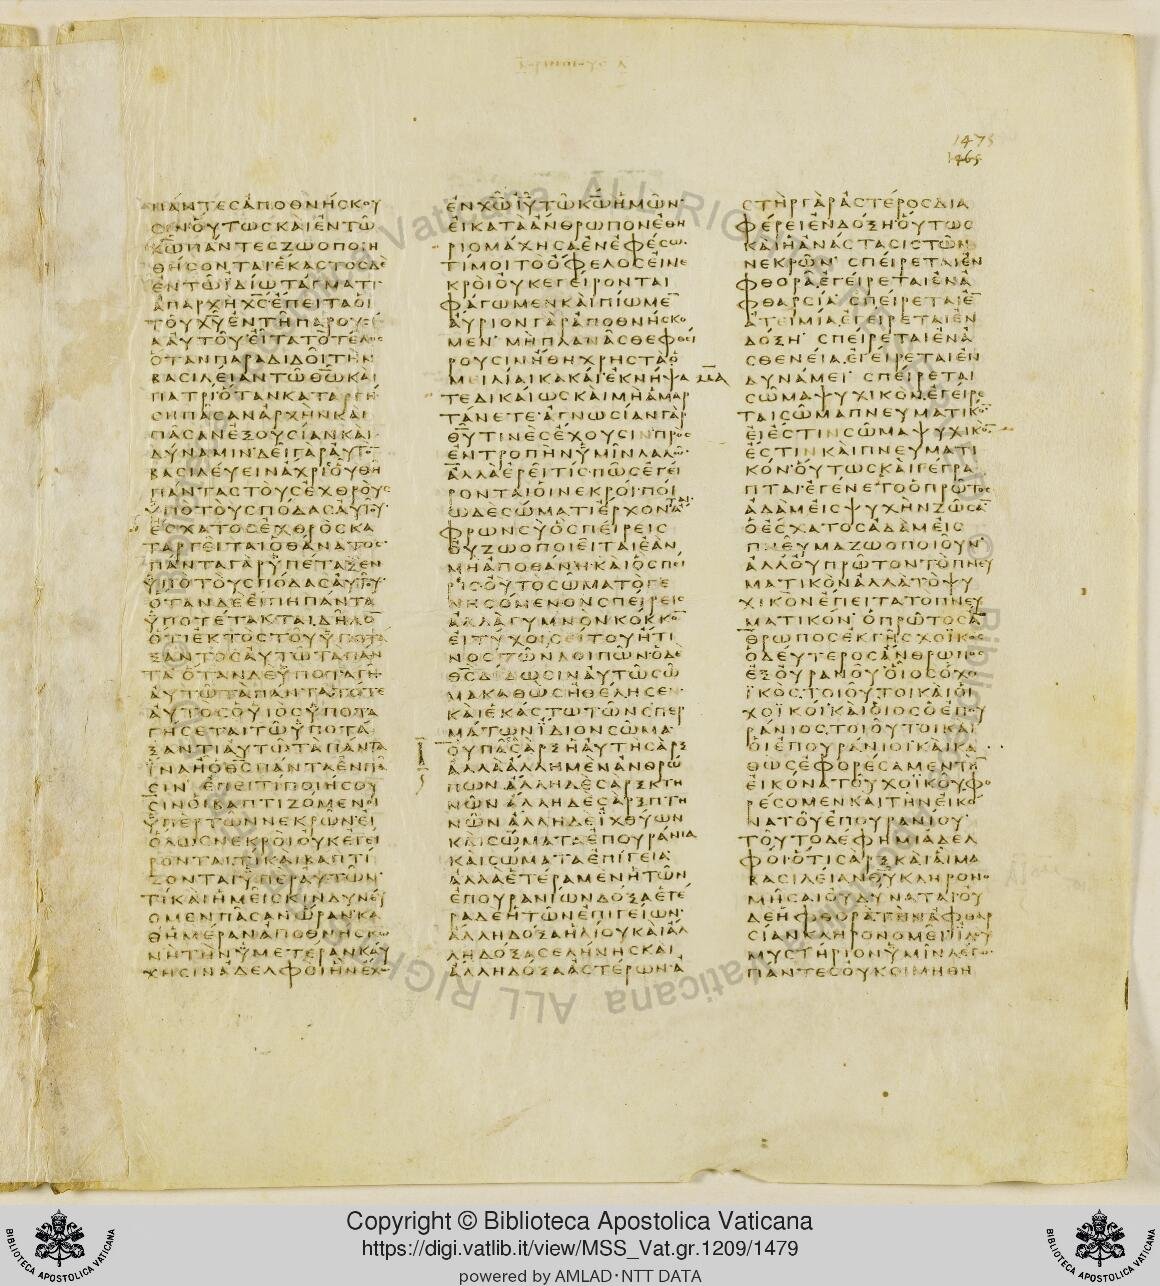 1475
1465
ΠΑΝΤΕСΑΠΟΘΝΗСΚΟΥ
СΙΝΟΥΤΩСΚΑΙΕΝΤΩ
ΧΩΠΑΝΤΕСΖΩΟΠΟΙΗ
ΘΗСΟΝΤΑΙΕΚΑСΤΟСΔΕ
ΕΝΤΩΙΔΙΩΤΑΓΜΑΤΙ
ΑΠΑΡΧΗΧСΕΠΕΙΤΑΟΙ
ΤΟΥΧΥΕΝΤΗΠΑΡΟΥСΙ
ΑΑΥΤΟΥΕΙΤΑΤΟΤΕΛΟС
ΟΤΑΝΠΑΡΑΔΙΔΟΙΤΗΝ
ΒΑСΙΛΕΙΑΝΤΩΘΩΚΑΙ
ΠΑΤΡΙΟΤΑΝΚΑΤΑΡΓΗ
СΗΠΑСΑΝΑΡΧΗΝΚΑΙ
ΠΑСΑΝΕΞΟΥСΙΑΝΚΑΙ
ΔΥΝΑΜΙΝΔΕΙΓΑΡΑΥΤΟ
ΒΑСΙΛΕΥΕΙΝΑΧΡΙΟΥΘΗ
ΠΑΝΤΑСΤΟΥСΕΧΘΡΟΥС
ΥΠΟΤΟΥСΠΟΔΑСΑΥΤΟΥ
ΕСΧΑΤΟСΕΧΘΡΟСΚΑ
ΤΑΡΓΕΙΤΑΙΟΘΑΝΑΤΟС
ΠΑΝΤΑΓΑΡΥΠΕΤΑΞΕΝ
ΥΠΟΤΟΥСΠΟΔΑСΑΥΤΟΥ
ΟΤΑΝΔΕΕΙΠΗΠΑΝΤΑ
ΥΠΟΤΕΤΑΚΤΑΙΔΗΛΟ
ΟΤΙΕΚΤΟСΤΟΥΥΠΟΤΑ
ΞΑΝΤΟСΑΥΤΩΤΑΠΑΝ
ΤΑΟΤΑΝΔΕΥΠΟΤΑΓΗ
ΑΥΤΩΤΑΠΑΝΤΑΤΟΤΕ
ΑΥΤΟСΟΥΙΟСΥΠΟΤΑ
ΓΗСΕΤΑΙΤΩΥΠΟΤΑ
ΞΑΝΤΙΑΥΤΩΤΑΠΑΝΤΑ
ΙΝΑΗΟΘСΠΑΝΤΑΕΝΠΑ
СΙΝΕΠΕΙΤΙΠΟΙΗСΟΥ
СΙΝΟΙΒΑΠΤΙΖΟΜΕΝΟΙ
ΥΠΕΡΤΩΝΝΕΚΡΩΝΕΙ
ΟΛΩСΝΕΚΡΟΙΟΥΚΕΓΕΙ
ΡΟΝΤΑΙΤΙΚΑΙΒΑΠΤΙ
ΖΟΝΤΑΙΥΠΕΡΑΥΤΩΝ
ΤΙΚΑΙΗΜΕΙСΚΙΝΔΥΝΕΥ
ΟΜΕΝΠΑСΑΝΩΡΑΝΚΑ
ΘΗΜΕΡΑΝΑΠΟΘΝΗСΚΩ
ΝΗΤΗΝΥΜΕΤΕΡΑΝΚΑΥ
ΧΗСΙΝΑΔΕΛΦΟΙΗΝΕΧΩ
ΕΝΧΩΙΥΤΩΚΩΗΜΩΝ
ΕΙΚΑΤΑΑΝΘΡΩΠΟΝΕΘΗ
ΡΙΟΜΑΧΗСΑΕΝΕΦΕСΩ
ΤΙΜΟΙΤΟΟΦΕΛΟСΕΙΝΕ
ΚΡΟΙΟΥΚΕΓΕΙΡΟΝΤΑΙ
ΦΑΓΩΜΕΝΚΑΙΠΙΩΜΕ
ΑΥΡΙΟΝΓΑΡΑΠΟΘΝΗСΚΟ
ΜΕΝΜΗΠΛΑΝΑСΘΕΦΘΕΙ
ΡΟΥСΙΝΗΘΗΧΡΗСΤΑΟ
ΜΕΙΛΙΑΙΚΑΚΑΙΕΚΝΗΨΑ
ΤΕΔΙΚΑΙΩСΚΑΙΜΗΑΜΑΡ
ΤΑΝΕΤΕΑΓΝΩСΙΑΝΓΑΡ
ΘΥΤΙΝΕСΕΧΟΥСΙΝΠΡΟС
ΕΝΤΡΟΠΗΝΥΜΙΝΛΑΛΩ
ΑΛΛΑΕΡΕΙΤΙСΠΩСΕΓΕΙ
ΡΟΝΤΑΙΟΙΝΕΚΡΟΙΠΟΙ
ΩΔΕСΩΜΑΤΙΕΡΧΟΝΤΑΙ
ΦΡΩΝСΥΟСΠΕΙΡΕΙС
ΟΥΖΩΟΠΟΙΕΙΤΑΙΕΑΝ
ΜΗΑΠΟΘΑΝΗΚΑΙΟСΠΕΙ
ΡΕΙСΟΥΤΟСΩΜΑΤΟΓΕ
ΝΗСΟΜΕΝΟΝСΠΕΙΡΕΙС
ΑΛΛΑΓΥΜΝΟΝΚΟΚΚΟ
ΕΙΤΥΧΟΙСΕΙΤΟΥΗΤΙ
ΝΟСΤΩΝΛΟΙΠΩΝΟΔΕ
ΘСΔΙΔΩСΙΝΑΥΤΩСΩ
ΜΑΚΑΘΩСΗΘΕΛΗСΕΝ
ΚΑΙΕΚΑСΤΩΤΩΝСΠΕΡ
ΜΑΤΩΝΙΔΙΟΝСΩΜΑ
ΟΥΠΑСΑСΑΡΞΗΑΥΤΗСΑΡΞ
ΑΛΛΑΑΛΛΗΜΕΝΑΝΘΡΩ
ΠΩΝΑΛΛΗΔΕСΑΡΞΚΤΗ
ΝΩΝΑΛΛΗΔΕСΑΡΞΠΤΗ
ΝΩΝΑΛΛΗΔΕΙΧΘΥΩΝ
ΚΑΙСΩΜΑΤΑΕΠΟΥΡΑΝΙΑ
ΚΑΙСΩΜΑΤΑΕΠΙΓΕΙΑ
ΑΛΛΑΕΤΕΡΑΜΕΝΗΤΩΝ
ΕΠΟΥΡΑΝΙΩΝΔΟΞΑΕΤΕ
ΡΑΔΕΗΤΩΝΕΠΙΓΕΙΩΝ
ΑΛΛΗΔΟΞΑΗΛΙΟΥΚΑΙΑΛ
ΛΗΔΟΞΑСΕΛΗΝΗСΚΑΙ
ΑΛΛΗΔΟΞΑΑСΤΕΡΩΝΑ
СΤΗΡΓΑΡΑСΤΕΡΟСΔΙΑ
ΦΕΡΕΙΕΝΔΟΞΗΟΥΤΩС
ΚΑΙΗΑΝΑСΤΑСΙСΤΩΝ
ΝΕΚΡΩΝСΠΕΙΡΕΤΑΙΕΝ
ΦΘΟΡΑΕΓΕΙΡΕΤΑΙΕΝΑ
ΦΘΑΡСΙΑСΠΕΙΡΕΤΑΙΕ
ΑΤΕΙΜΙΑΕΓΕΙΡΕΤΑΙΕΝ
ΔΟΞΗСΠΕΙΡΕΤΑΙΕΝΑ
СΘΕΝΕΙΑΕΓΕΙΡΕΤΑΙΕΝ
ΔΥΝΑΜΕΙСΠΕΙΡΕΤΑΙ
СΩΜΑΨΥΧΙΚΟΝΕΓΕΙΡΕ
ΤΑΙСΩΜΑΠΝΕΥΜΑΤΙΚΟ
ΕΙΕСΤΙΝСΩΜΑΨΥΧΙΚΟ
ΕСΤΙΝΚΑΙΠΝΕΥΜΑΤΙ
ΚΟΝΟΥΤΩСΚΑΙΓΕΓΡΑ
ΠΤΑΙΕΓΕΝΕΤΟΟΠΡΩΤΟС
ΑΔΑΜΕΙСΨΥΧΗΝΖΩСΑ
ΟΕСΧΑΤΟСΑΔΑΜΕΙС
ΠΝΕΥΜΑΖΩΟΠΟΙΟΥΝ
ΑΛΛΟΥΠΡΩΤΟΝΤΟΠΝΕΥ
ΜΑΤΙΚΟΝΑΛΛΑΤΟΨΥ
ΧΙΚΟΝΕΠΕΙΤΑΤΟΠΝΕΥ
ΜΑΤΙΚΟΝΟΠΡΩΤΟСΑ
ΘΡΩΠΟСΕΚΓΗСΧΟΙΚΟС
ΟΔΕΥΤΕΡΟСΑΝΘΡΩΠΟС
ΕΞΟΥΡΑΝΟΥΟΙΟСΟΧΟ
ΙΚΟСΤΟΙΟΥΤΟΙΚΑΙΟΙ
ΧΟΙΚΟΙΚΑΙΟΙΟСΟΕΠΟΥ
ΡΑΝΙΟСΤΟΙΟΥΤΟΙΚΑΙ
ΟΙΕΠΟΥΡΑΝΙΟΙΚΑΙΚΑ
ΘΩСΕΦΟΡΕСΑΜΕΝΤΗ
ΕΙΚΟΝΑΤΟΥΧΟΙΚΟΥΦΟ
ΡΕСΟΜΕΝΚΑΙΤΗΝΕΙΚΟ
ΝΑΤΟΥΕΠΟΥΡΑΝΙΟΥ
ΤΟΥΤΟΔΕΦΗΜΙΑΔΕΛ
ΦΟΙΟΤΙСΑΡΞΚΑΙΑΙΜΑ
ΒΑСΙΛΕΙΑΝΘΥΚΛΗΡΟΝΟ
ΜΗСΑΙΟΥΔΥΝΑΤΑΙΟΥ
ΔΕΗΦΘΟΡΑΤΗΝΑΦΘΑΡ
СΙΑΝΚΛΗΡΟΝΟΜΕΙΙΔΟΥ
ΜΥСΤΗΡΙΟΝΥΜΙΝΛΕΓΩ
ΠΑΝΤΕСΟΥΚΟΙΜΗΘΗ
Copyright © Biblioteca Apostolica Vaticana
https://digi.vatlib.it/view/MSS_Vat.gr.1209/1479
powered by AMLAD·NTT DATA